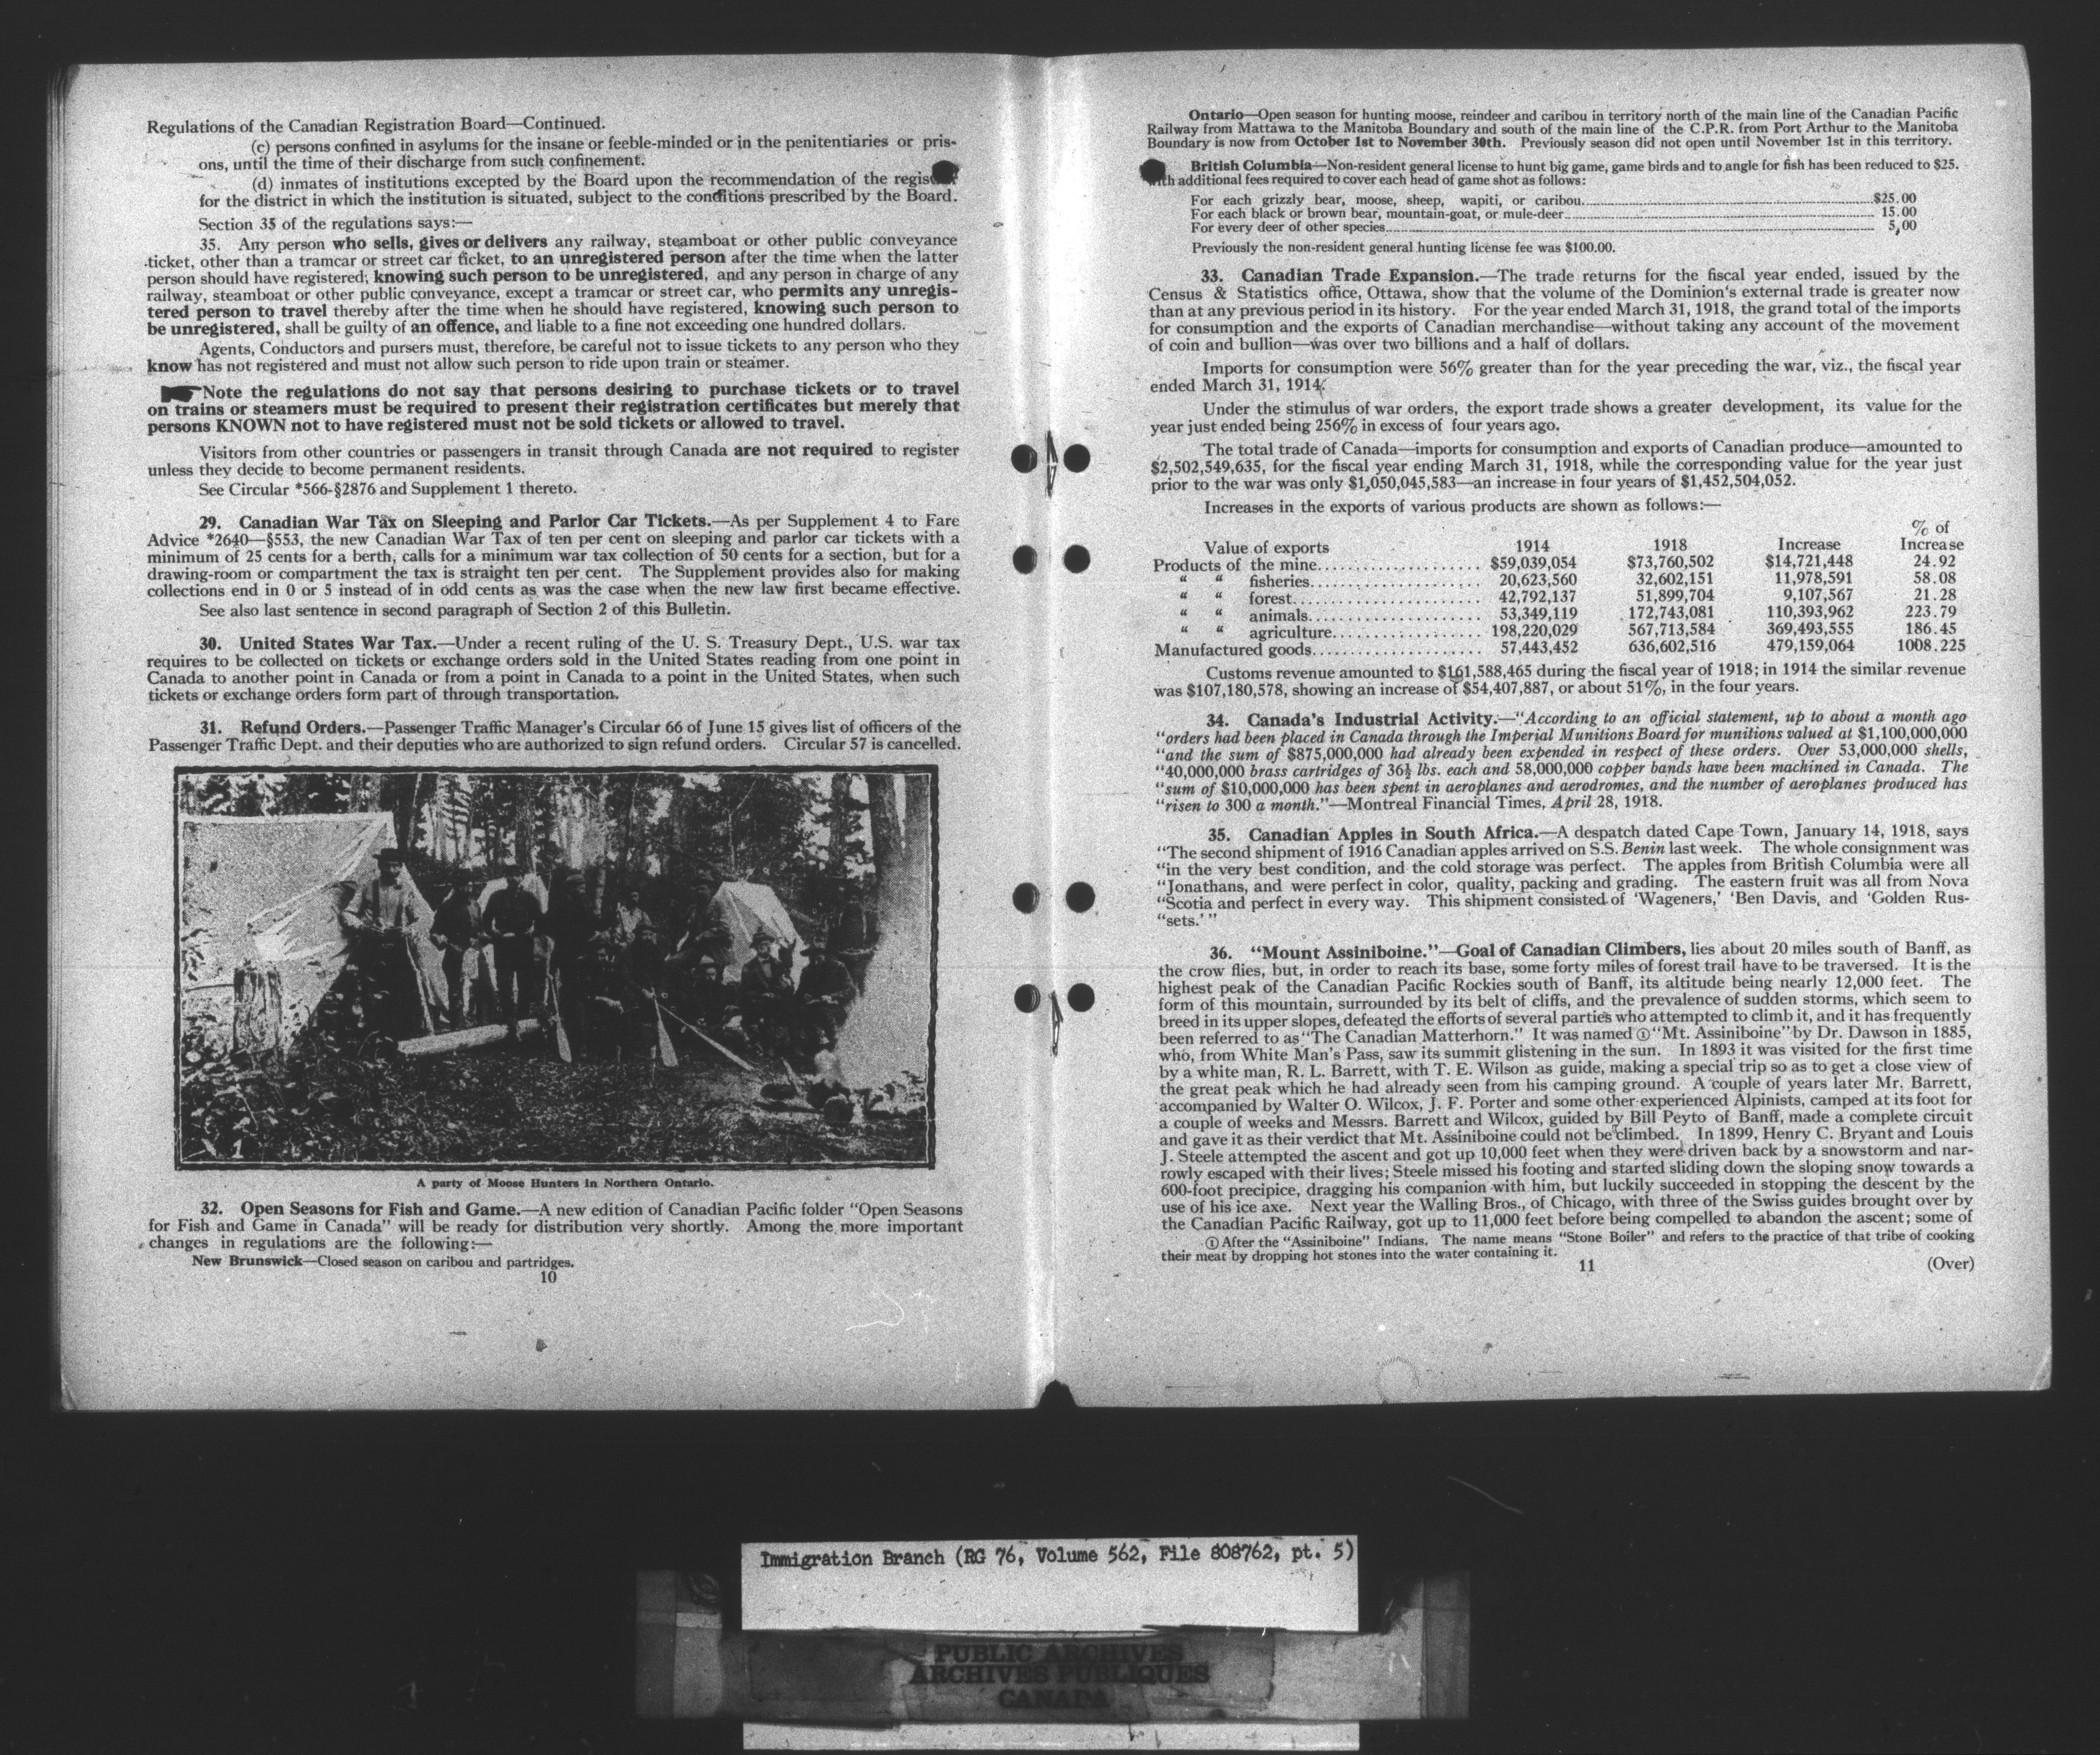 Regulations of the Canadian Registration Board—Continued.
(c) persons confined in asylums for the insane or feeble-minded or in the penitentiaries or pris-
ons, until the time of their discharge from such confinement.
(d) inmates of institutions excepted by the Board upon the recommendation of the
for the district in which the institution is situated, subject to the conditions prescribed by the Board.
Section 35 of the regulations says:—
35. Any person who sells, gives or delivers any railway, steamboat or other public conveyance
ticket, other than a tramcar or street car ticket, to an unregistered person after the time when the latter
person should have registered, knowing such person to be unregistered, and any person in charge of any
railway, steamboat or other public conveyance, except a tramcar or street car, who permits any unregis-
tered person to travel thereby after the time when he should have registered, knowing such person to
be unregistered, shall be guilty of an offence, and liable to a fine not exceeding one hundred dollars.
Agents, Conductors and pursers must, therefore, be careful not to issue tickets to any person who they
know has not registered and must not allow such person to ride upon train or steamer.
Note the regulations do not say that persons desiring to purchase tickets or to travel
on trains or steamers must be required to present their registration certificates but merely that
persons KNOWN not to have registered must not be sold tickets or allowed to travel.
Visitors from other countries or passengers in transit through Canada are not required to register
unless they decide to become permanent residents.
See Circular *566-§2876 and Supplement 1 thereto.
29. Canadian War Tax on Sleeping and Parlor Car Tickets.—As per Supplement 4 to Fare
Advice *2640—§553, the new Canadian War Tax of ten per cent on sleeping and parlor car tickets with a
minimum of 25 cents for a berth, calls for a minimum war tax collection of 50 cents for a section, but for a
drawing-room or compartment the tax is straight ten per cent. The Supplement provides also for making
collections end in 0 or 5 instead of in odd cents as was the case when the new law first became effective.
See also last sentence in second paragraph of Section 2 of this Bulletin.
30. United States War Tax.—Under a recent ruling of the U. S. Treasury Dept., U.S. war tax
requires to be collected on tickets or exchange orders sold in the United States reading from one point in
Canada to another point in Canada or from a point in Canada to a point in the United States, when such
tickets or exchange orders form part of through transportation.
31. Refund Orders.—Passenger Traffic Manager's Circular 66 of June 15 gives list of officers of the
Passenger Traffic Dept. and their deputies who are authorized to sign refund orders. Circular 57 is cancelled.
A party of Moose Hunters in Northern Ontario.
32. Open Seasons for Fish and Game.—A new edition of Canadian Pacific folder "Open Seasons
for Fish and Game in Canada" will be ready for distribution very shortly. Among the more important
changes in regulations are the following:—
New Brunswick—Closed season on caribou and partridges.
10
Ontario—Open season for hunting moose, reindeer and caribou in territory north of the main line of the Canadian Pacific
Railway from Mattawa to the Manitoba Boundary and south of the main line of the C.P.R. from Port Arthur to the Manitoba
Boundary is now from October 1st to November 30th. Previously season did not open until November 1st in this territory.
British Columbia—Non-resident general license to hunt big game, game birds and to angle for fish has been reduced to $25.
with additional fees required to cover each head of game shot as follows:
For each grizzly bear, moose, sheep, wapiti, or caribou $25.00
For each black or brown bear, mountain-goat, or mule-deer 15.00
For every deer of other species 5.00
Previously the non-resident general hunting license fee was $100.00.
33. Canadian Trade Expansion.—The trade returns for the fiscal year ended, issued by the
Census & Statistics office, Ottawa, show that the volume of the Dominion's external trade is greater now
than at any previous period in its history. For the year ended March 31, 1918, the grand total of the imports
for consumption and the exports of Canadian merchandise—without taking any account of the movement
of coin and bullion—was over two billions and a half of dollars.
Imports for consumption were 56% greater than for the year preceding the war, viz., the fiscal year
ended March 31, 1914.
Under the stimulus of war orders, the export trade shows a greater development, its value for the
year just ended being 256% in excess of four years ago.
The total trade of Canada—imports for consumption and exports of Canadian produce—amounted to
$2,502,549,635, for the fiscal year ending March 31, 1918, while the corresponding value for the year just
prior to the war was only $1,050,045,583—an increase in four years of $1,452,504,052.
Increases in the exports of various products are shown as follows:—
% of
Value of exports 1914 1918 Increase Increase
Products of the mine $59,039,054 $73,760,502 $14,721,448 24.92
" " fisheries 20,623,560 32,602,151 11,978,591 58.08
" " forest 42,792,137 51,899,704 9,107,567 21.28
" " animals 53,349,119 172,743,081 110,393,962 223.79
" " agriculture 198,220,029 567,713,584 369,493,555 186.45
Manufactured goods 57,443,452 636,602,516 479,159,064 1008.225
Customs revenue amounted to $161,588,465 during the fiscal year of 1918; in 1914 the similar revenue
was $107,180,578, showing an increase of $54,407,887, or about 51%, in the four years.
34. Canada's Industrial Activity.—"According to an official statement, up to about a month ago
"orders had been placed in Canada through the Imperial Munitions Board for munitions valued at $1,100,000,000
"and the sum of $875,000,000 had already been expended in respect of these orders. Over 53,000,000 shells,
"40,000,000 brass cartridges of 36½ lbs. each and 58,000,000 copper bands have been machined in Canada. The
"sum of $10,000,000 has been spent in aeroplanes and aerodromes, and the number of aeroplanes produced has
"risen to 300 a month."—Montreal Financial Times, April 28, 1918.
35. Canadian Apples in South Africa.—A despatch dated Cape Town, January 14, 1918, says
"The second shipment of 1916 Canadian apples arrived on S.S. Benin last week. The whole consignment was
"in the very best condition, and the cold storage was perfect. The apples from British Columbia were all
"Jonathans, and were perfect in color, quality, packing and grading. The eastern fruit was all from Nova
"Scotia and perfect in every way. This shipment consisted of 'Wageners,' 'Ben Davis, and 'Golden Rus-
"sets.'"
36. "Mount Assiniboine."—Goal of Canadian Climbers, lies about 20 miles south of Banff, as
the crow flies, but, in order to reach its base, some forty miles of forest trail have to be traversed. It is the
highest peak of the Canadian Pacific Rockies south of Banff, its altitude being nearly 12,000 feet. The
form of this mountain, surrounded by its belt of cliffs, and the prevalence of sudden storms, which seem to
breed in its upper slopes, defeated the efforts of several parties who attempted to climb it, and it has frequently
been referred to as "The Canadian Matterhorn." It was named ① "Mt. Assiniboine" by Dr. Dawson in 1885,
who, from White Man's Pass, saw its summit glistening in the sun. In 1893 it was visited for the first time
by a white man, R. L. Barrett, with T. E. Wilson as guide, making a special trip so as to get a close view of
the great peak which he had already seen from his camping ground. A couple of years later Mr. Barrett,
accompanied by Walter O. Wilcox, J. F. Porter and some other experienced Alpinists, camped at its foot for
a couple of weeks and Messrs. Barrett and Wilcox, guided by Bill Peyto of Banff, made a complete circuit
and gave it as their verdict that Mt. Assiniboine could not be climbed. In 1899, Henry C. Bryant and Louis
J. Steele attempted the ascent and got up 10,000 feet when they were driven back by a snowstorm and nar-
rowly escaped with their lives; Steele missed his footing and started sliding down the sloping snow towards a
600-foot precipice, dragging his companion with him, but luckily succeeded in stopping the descent by the
use of his ice axe. Next year the Walling Bros., of Chicago, with three of the Swiss guides brought over by
the Canadian Pacific Railway, got up to 11,000 feet before being compelled to abandon the ascent; some of
① After the "Assiniboine" Indians. The name means "Stone Boiler" and refers to the practice of that tribe of cooking
their meat by dropping hot stones into the water containing it.
11
(Over)
Immigration Branch (RG 76, Volume 562, File 808762, pt. 5)
PUBLIC ARCHIVES
ARCHIVES PUBLIQUES
CANADA